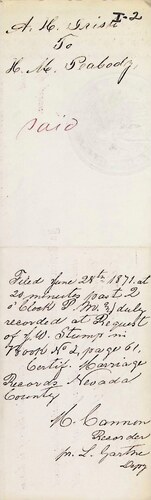 I-2
A. H. Trish
To
H. M. Peabody
Paid
Filed June 28th 1871. at
20 minutes past 2
o'Clock P. M. & duly
recorded at Request
of J. W. Stump in
Book No 2, page 61,
Certif. Marriage
Records Nevada
County
M. Cannon
Recorder
pr. L. Garthe
Depy